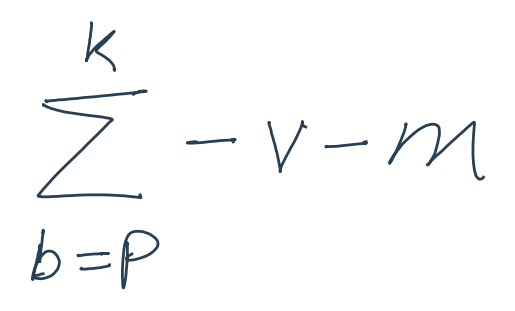 \sum_{b=p}^{k} - v - m